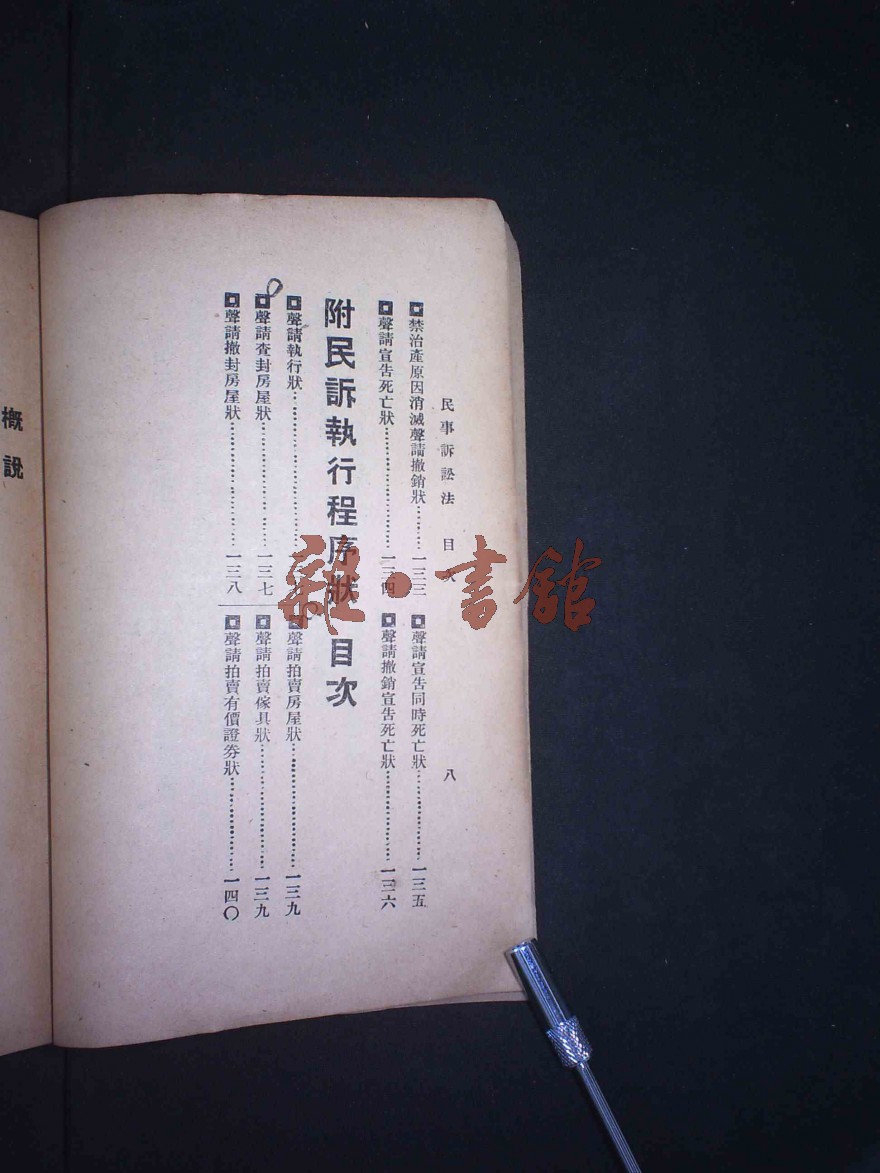 民事訴訟法 目次 八
禁治產原因消滅聲請撤銷狀…………一三三
聲請宣告同時死亡狀…………一三五
聲請宣告死亡狀…………一三四
聲請撤銷宣告死亡狀…………一三六
附民訴執行程序狀 目次
聲請執行狀…………
聲請拍賣房屋狀…………一三九
聲請查封房屋狀…………一三七
聲請拍賣傢具狀…………一三九
聲請撤封房屋狀…………一三八
聲請拍賣有價證券狀…………一四〇
概說
雜·書館